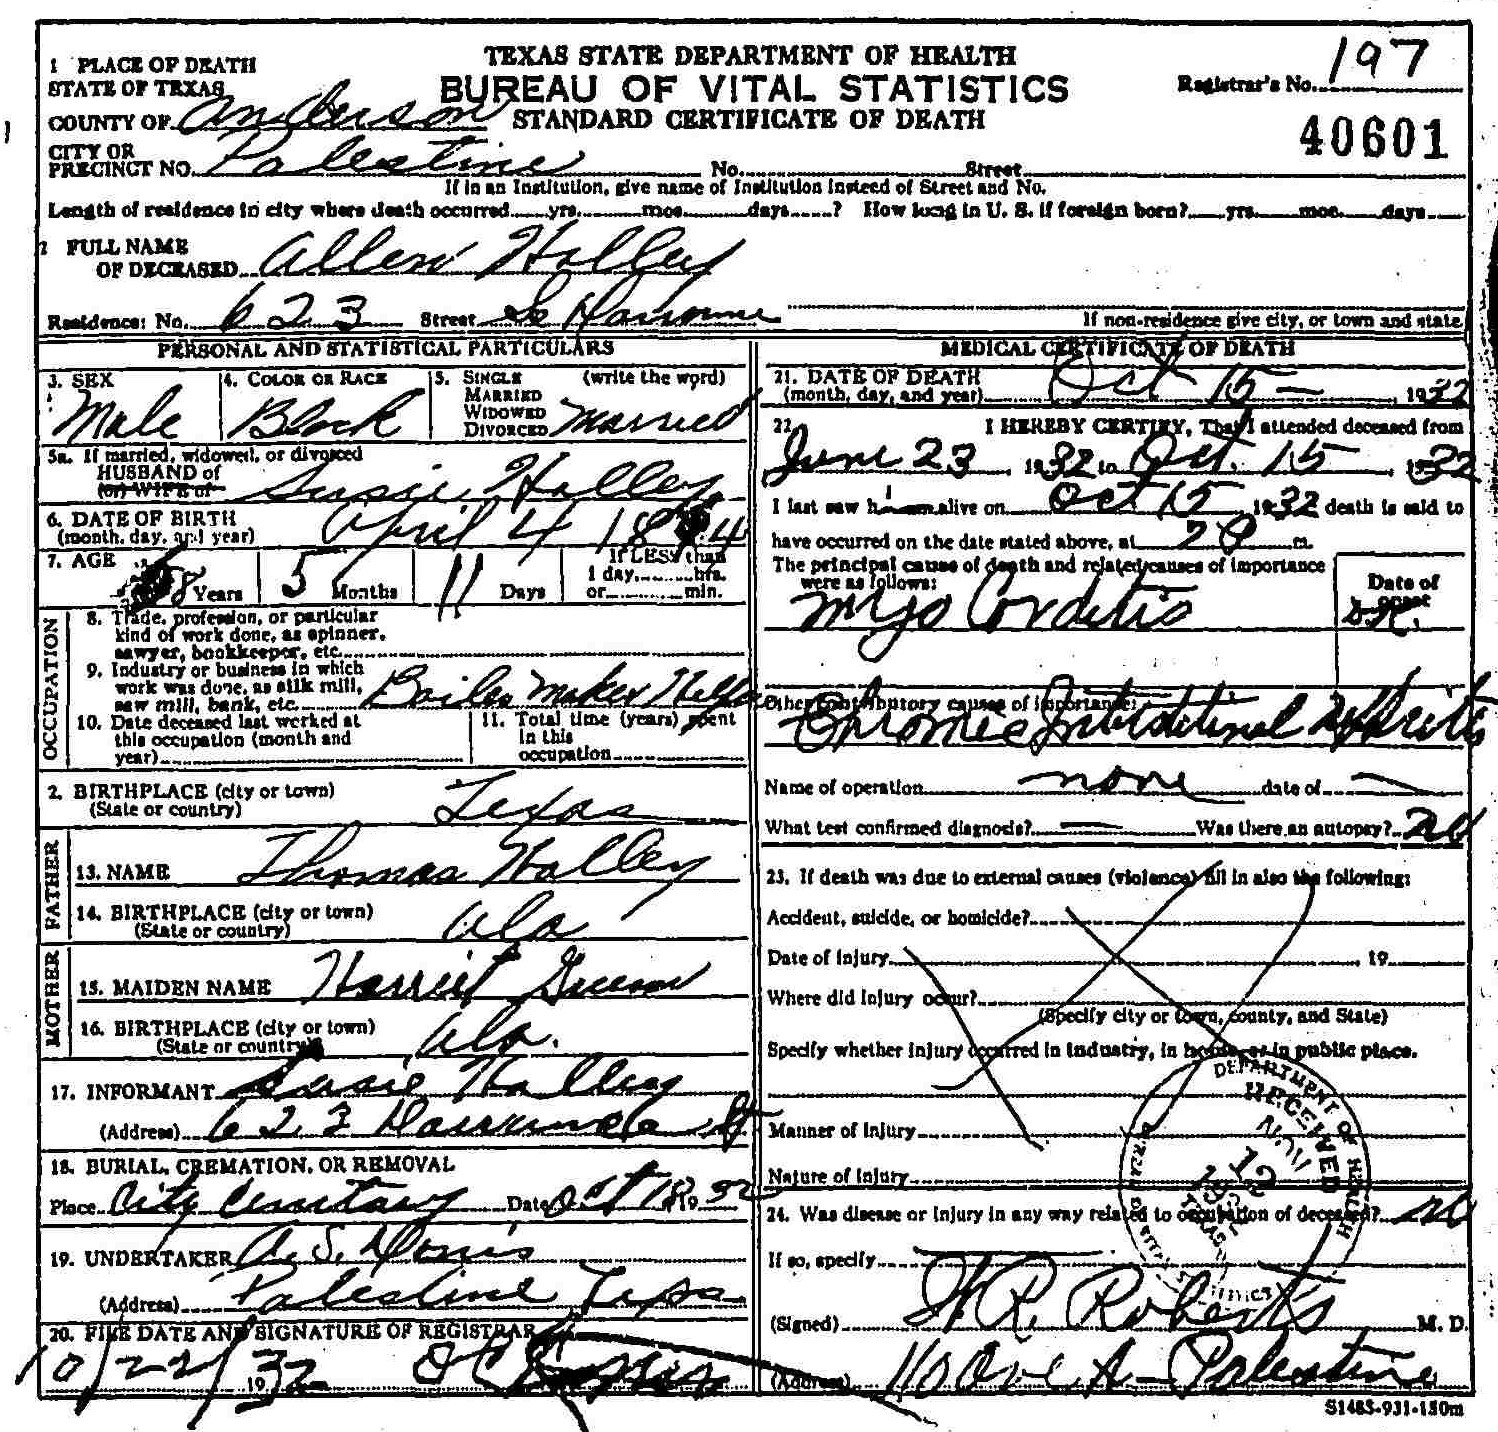 TEXAS STATE DEPARTMENT OF HEALTH
BUREAU OF VITAL STATISTICS
STANDARD CERTIFICATE OF DEATH
Registrar's No. 197
40601
1 PLACE OF DEATH
STATE OF TEXAS
COUNTY OF Anderson
CITY OR
PRECINCT NO. Palestine No. Street
If in an Institution, give name of Institution instead of Street and No.
Length of residence in city where death occurred yrs. mos. days ? How long in U. S. if foreign born? yrs. mos. days
2 FULL NAME
OF DECEASED Allen Holley
Residence: No. 623 Street So
If non-residence give city, or town and state.
PERSONAL AND STATISTICAL PARTICULARS
3. SEX Male
4. COLOR OR RACE Black
5. SINGLE (write the word)
MARRIED
WIDOWED
DIVORCED Married
5a. If married, widowed, or divorced
HUSBAND of
(or) WIFE of Susie Holley
6. DATE OF BIRTH
(month, day, and year) April 4 1874
7. AGE 58 Years 5 Months 11 Days
If LESS than
1 day, hrs.
or min.
OCCUPATION
8. Trade, profession, or particular
kind of work done, as spinner,
sawyer, bookkeeper, etc.
9. Industry or business in which
work was done, as silk mill,
saw mill, bank, etc. Boiler Maker Helper
10. Date deceased last worked at
this occupation (month and
year)
11. Total time (years) spent
in this
occupation
2. BIRTHPLACE (city or town)
(State or country) Texas
FATHER
13. NAME Thomas Holley
14. BIRTHPLACE (city or town)
(State or country) Ala
MOTHER
15. MAIDEN NAME Harriet Green
16. BIRTHPLACE (city or town)
(State or country) Ala.
17. INFORMANT Susie Holley
(Address) 623 St
18. BURIAL, CREMATION, OR REMOVAL
Place City Cemetary Date Oct 18 1932
19. UNDERTAKER A. S.
(Address) Palestine Texas
20. FILE DATE AND SIGNATURE OF REGISTRAR
10/22/32 19
MEDICAL CERTIFICATE OF DEATH
21. DATE OF DEATH
(month, day, and year) Oct 15 — , 1932
22. I HEREBY CERTIFY, That I attended deceased from
June 23 , 1932 to Oct. 15 , 1932
I last saw him alive on Oct 15 , 1932 death is said to
have occurred on the date stated above, at 2 P m.
The principal cause of death and related causes of importance
were as follows:
Myo Corditis
Date of
onset
D.K.
Other contributory causes of importance:
Chronic Interstitional Nephritis
Name of operation none date of —
What test confirmed diagnosis? — Was there an autopsy? No
23. If death was due to external causes (violence) fill in also the following:
Accident, suicide, or homicide?
Date of injury , 19
Where did injury occur?
(Specify city or town, county, and State)
Specify whether injury occurred in industry, in home, or in public place.
Manner of Injury
Nature of Injury
DEPARTMENT OF HEALTH
RECEIVED
NOV
12
1932
TEXAS
24. Was disease or injury in any way related to occupation of deceased? No
If so, specify
(Signed) H R. Roberts M. D.
(Address) Palestine
S1485-931-150m